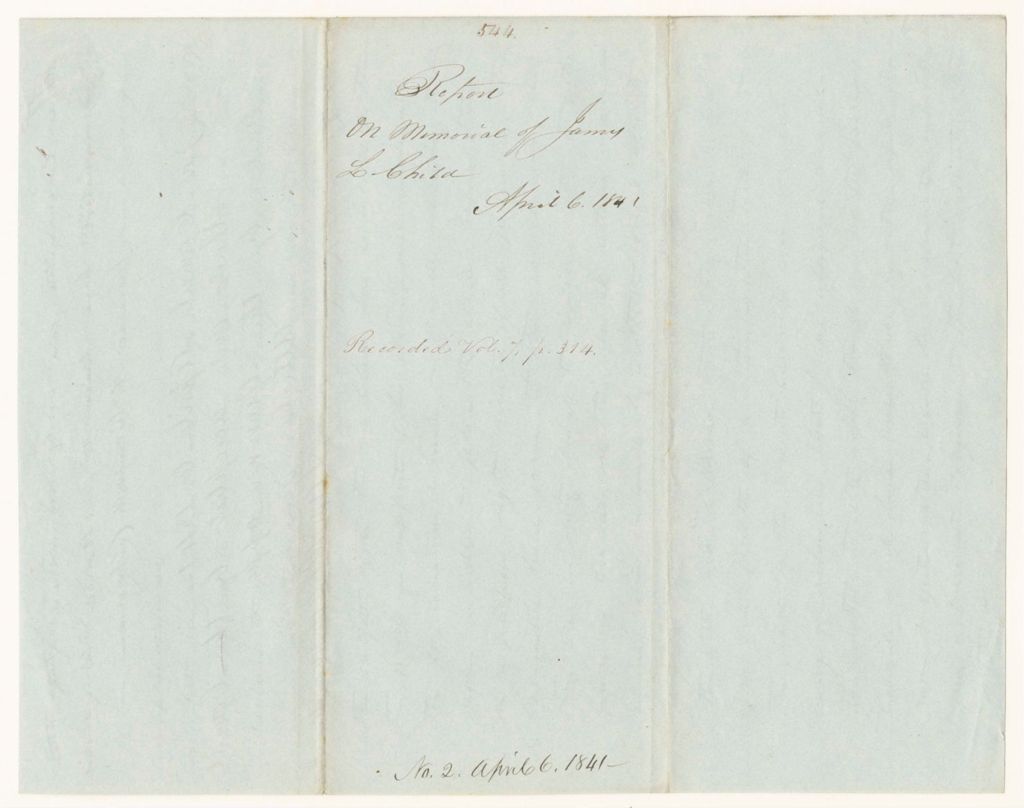 544.
Report
On Memorial of James
L Child
April 6. 1841
Recorded Vol. 7. p. 314.
No. 2. April 6. 1841